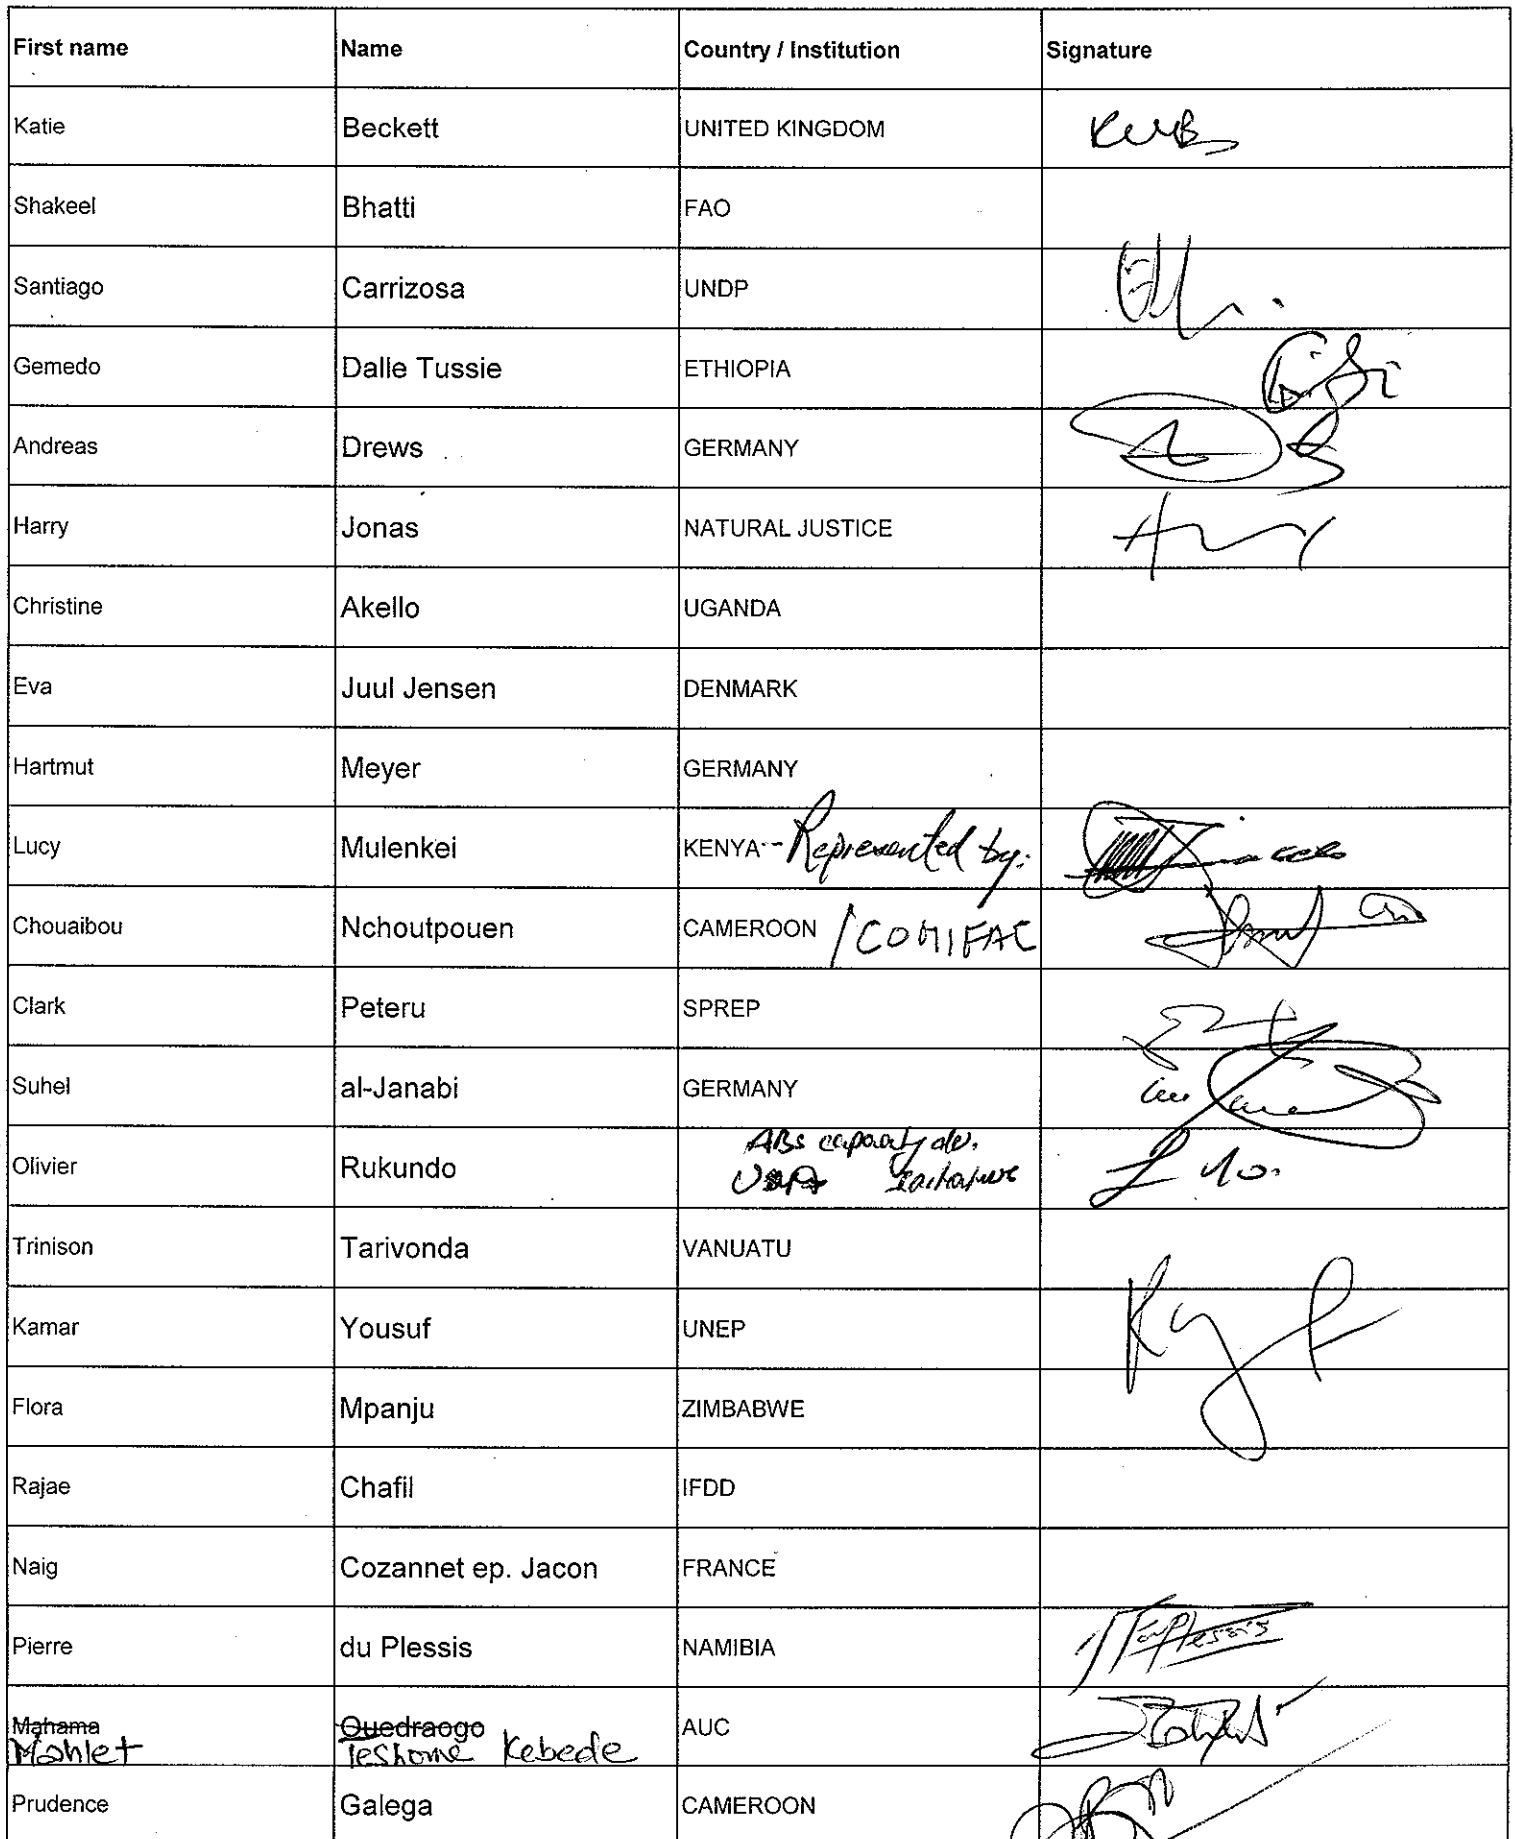 First name Name Country / Institution Signature
Katie Beckett UNITED KINGDOM
Shakeel Bhatti FAO
Santiago Carrizosa UNDP
Gemedo Dalle Tussie ETHIOPIA
Andreas Drews GERMANY
Harry Jonas NATURAL JUSTICE
Christine Akello UGANDA
Eva Juul Jensen DENMARK
Hartmut Meyer GERMANY
Lucy Mulenkei KENYA -- Represented by:
Chouaibou Nchoutpouen CAMEROON / COMIFAC
Clark Peteru SPREP
Suhel al-Janabi GERMANY
ABS capacity dev.
Olivier Rukundo
Trinison Tarivonda VANUATU
Kamar Yousuf UNEP
Flora Mpanju ZIMBABWE
Rajae Chafil IFDD
Naig Cozannet ep. Jacon FRANCE
Pierre du Plessis NAMIBIA
Mahama Ouedraogo AUC
Mahlet Teshome Kebede
Prudence Galega CAMEROON